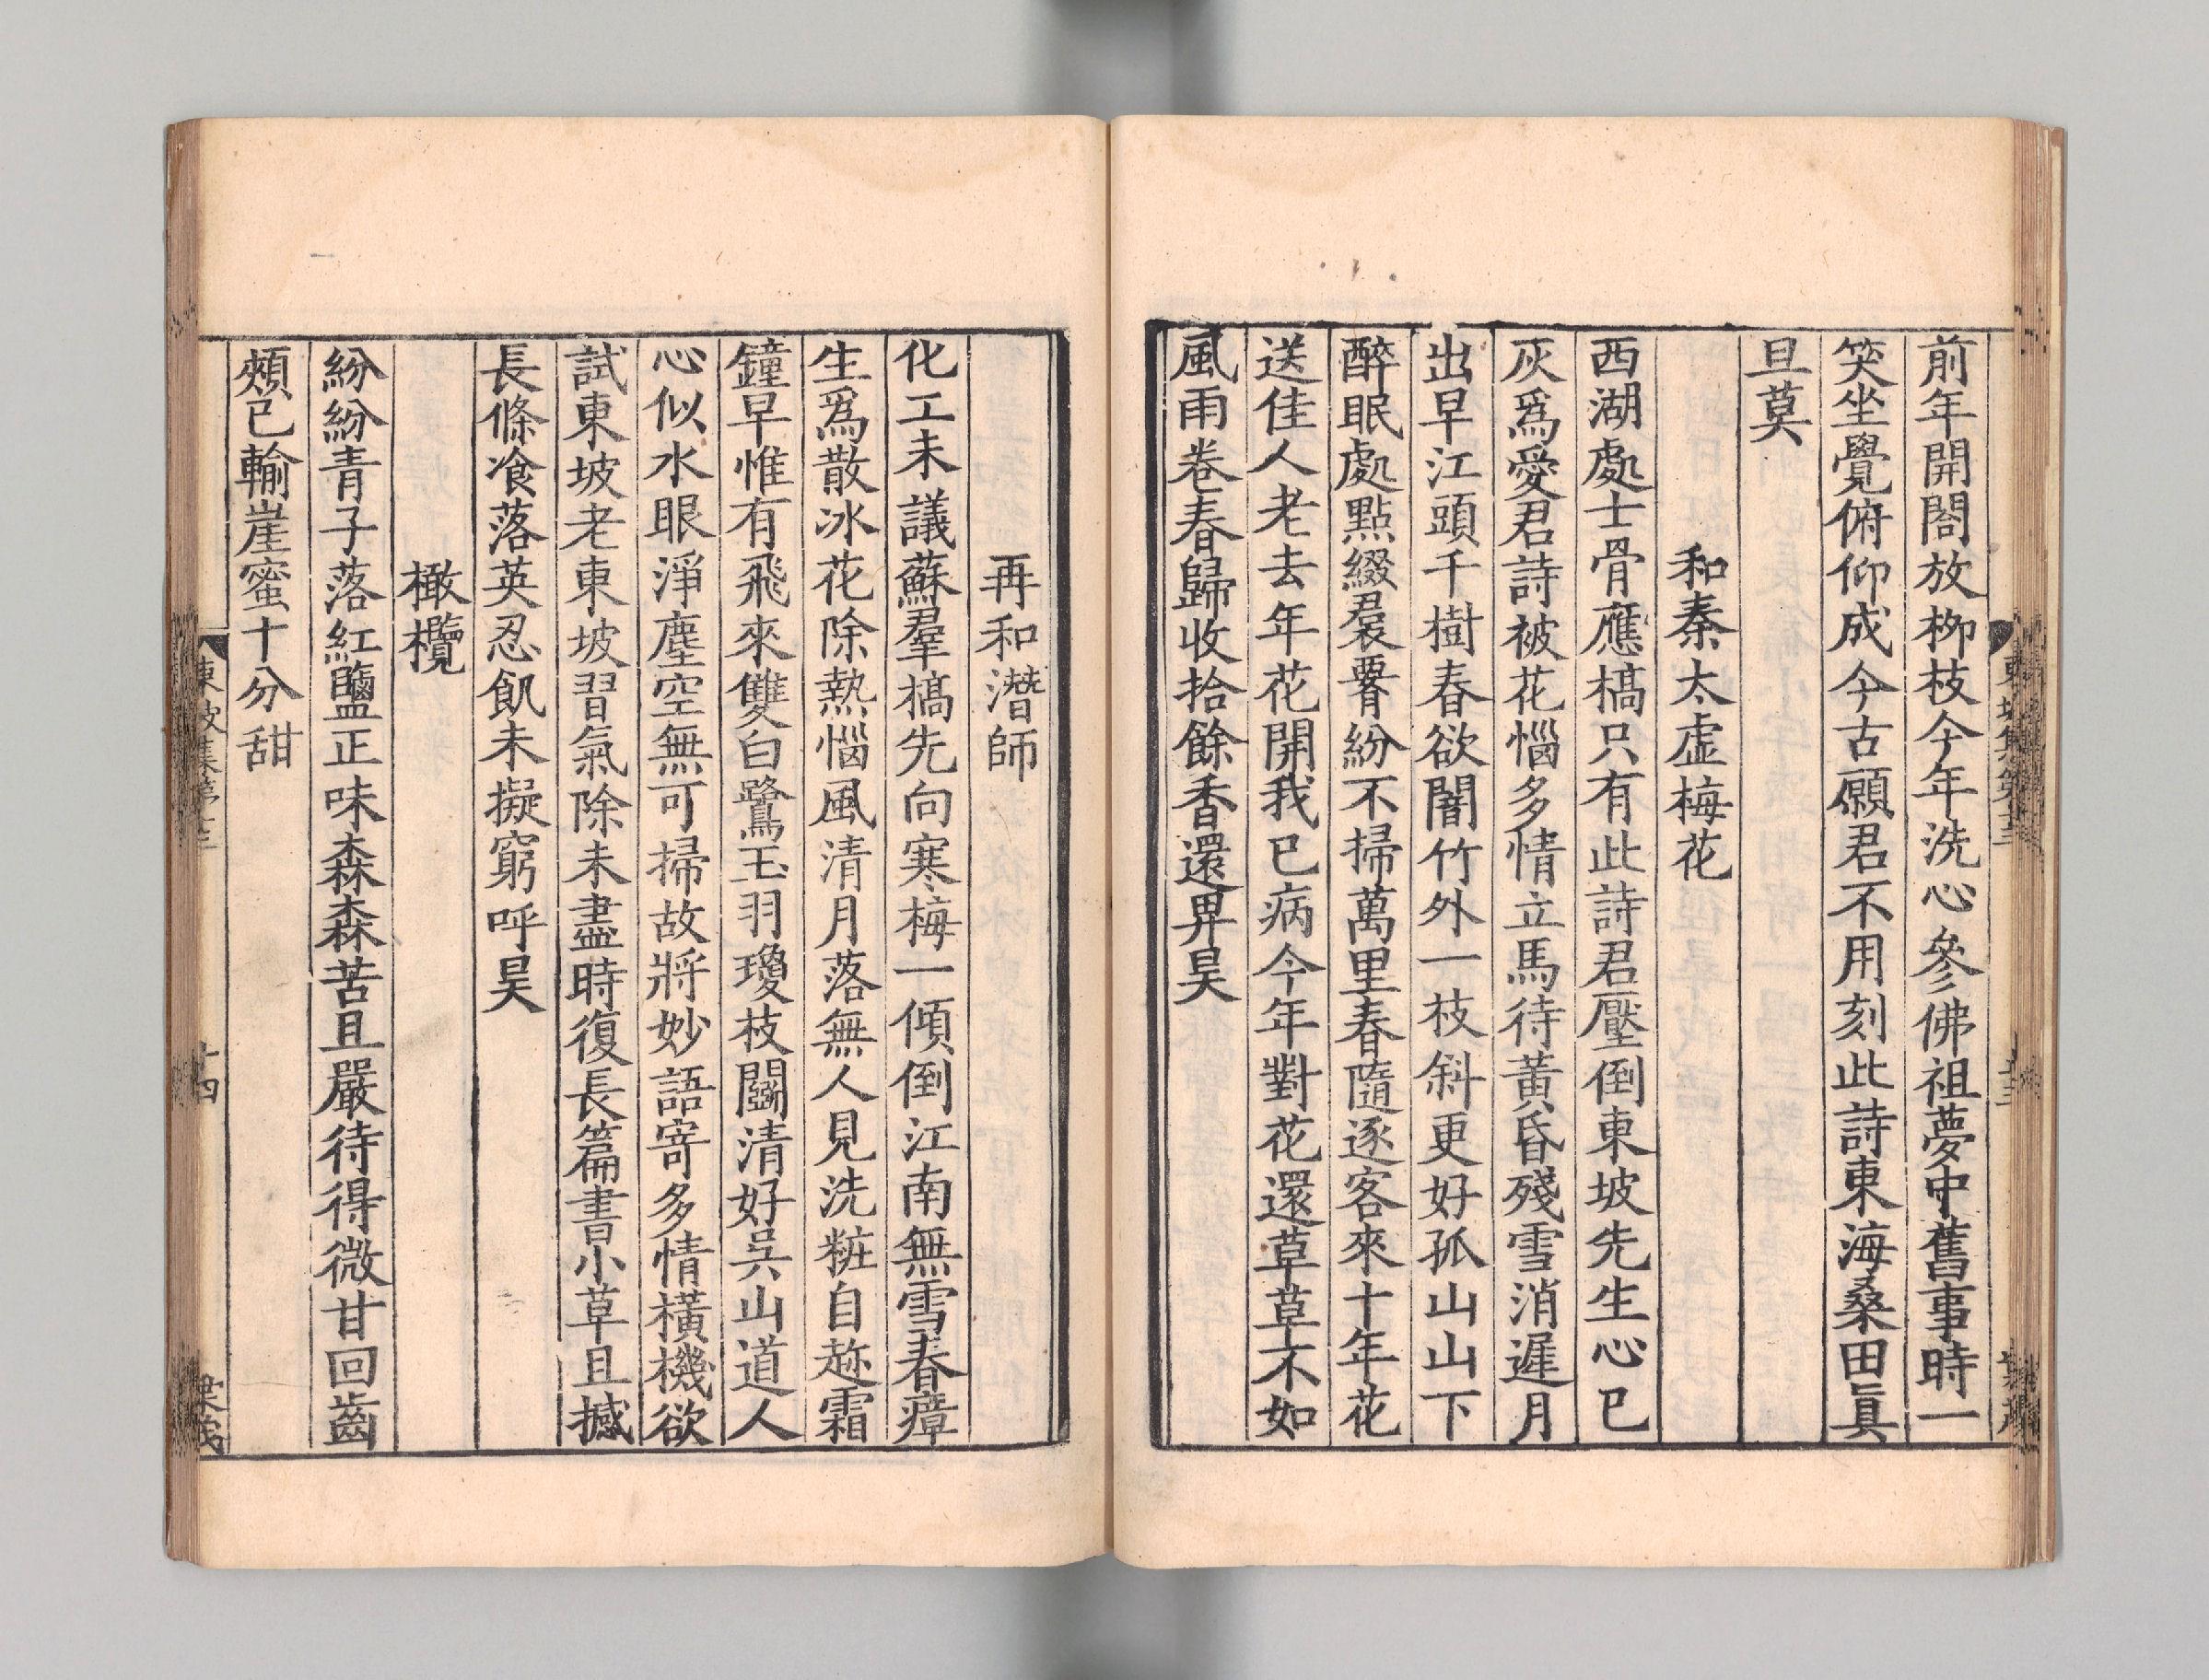 前年開閤放栁枝今年洗心參佛祖夢中舊事時一
笑坐覺俯仰成今古願君不用刻此詩東海桑田眞
旦莫
和秦太虛梅花
西湖處士骨應槁只有此詩君壓倒東坡先生心已
灰爲愛君詩被花惱多情立馬待黃昏殘雪消遲月
出早江頭千樹春欲闇竹外一枝斜更好孤山山下
醉眠處點綴裠腰紛不掃萬里春隨逐客來十年花
送佳人老去年花開我已病今年對花還草草不如
風雨卷春歸收拾餘香還畀昊
再和潛師
化工未議蘇羣槁先向寒梅一傾倒江南無雪春瘴
生爲散冰花除熱惱風清月落無人見洗粧自趂霜
鐘早惟有飛來雙白鷺玉羽瓊枝鬭清好吳山道人
心似水眼淨塵空無可掃故將妙語寄多情橫機欲
試東坡老東坡習氣除未盡時復長篇書小草且撼
長條飡落英忍飢未擬窮呼昊
橄欖
紛紛青子落紅鹽正味森森苦且嚴待得微甘回齒
頰已輸崖蜜十分甜
東坡集第十三
十四